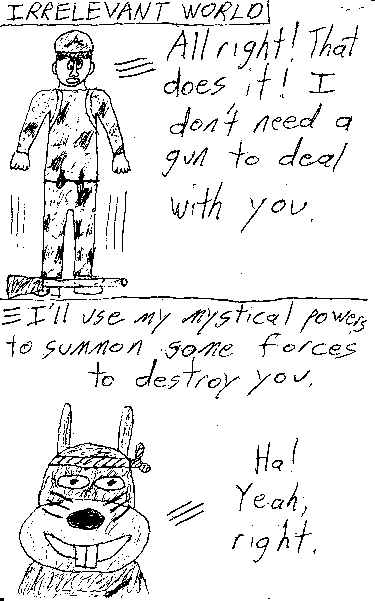 IRRELEVANT WORLD
All right! That
does it! I
don't need a
gun to deal
with you.
I'll use my mystical powers
to summon some forces
to destroy you.
Ha!
Yeah,
right.